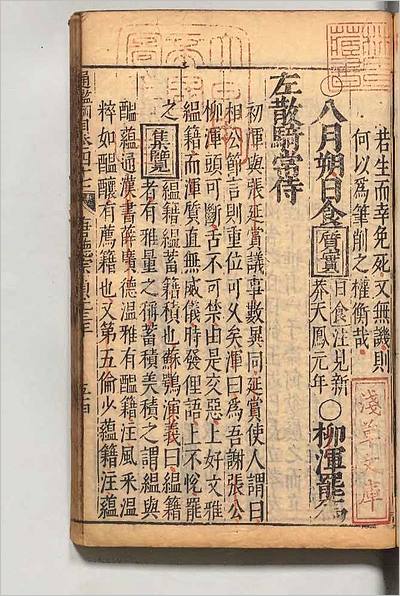 若生而幸免死文無譏則
何以為筆削之權衡哉
八月朔日食
質實
日食注見新
莽天鳳元年
〇柳渾罷為
左散騎常侍
初渾與張延賞議事數異同延賞使人謂曰
相公節言則重位可久矣渾曰為吾謝張公
柳渾頭可斷舌不可禁由是交惡上好文雅
縕籍而渾質直無威儀時發俚語上不悅罷
之
集覽
縕籍縕蓄籍積也蘇鶚演義曰縕籍
者有雅量之稱蓄積美積之謂縕與
醖蘊通漢書薛廣德溫雅有醖籍注風采溫
粹如醖釀有薦籍也又第五倫少蘊籍注蘊
淺草文庫